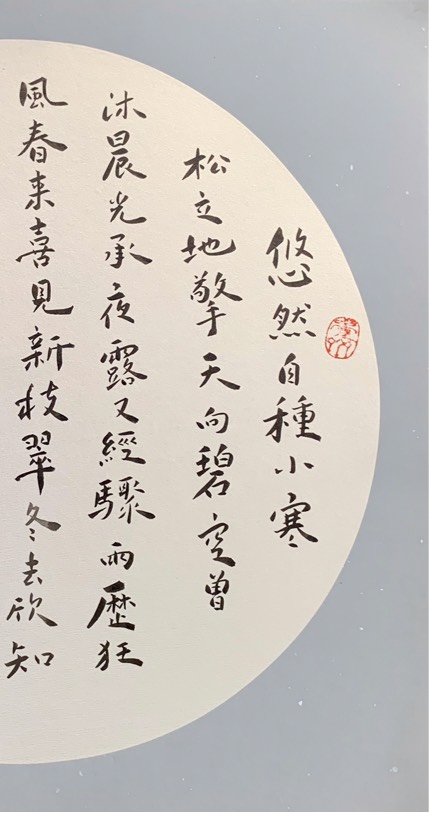 悠然自種小寒
松立地擎天向碧空曾
沐晨光承夜露又經驟雨歷狂
風春来喜見新枝翠冬去欣知